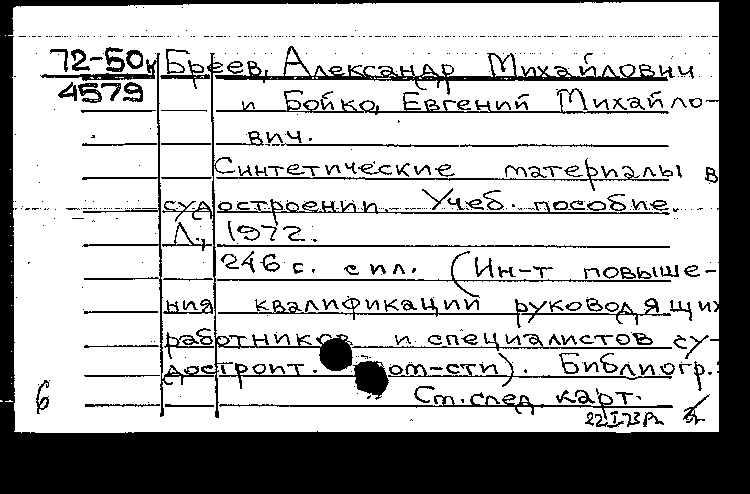 72-50к Бреев, Александр Михайлович
4579 и Бойко, Евгений Михайло-
вич.
Синтетические материалы в
судостроении. Учеб. пособие.
Л., 1972.
246 с. с ил. (Ин-т повыше-
ния квалификации руководящих
работников и специалистов су-
достроит. пром-сти). Библиогр.:
6 Ст. след. карт.
22.I.73